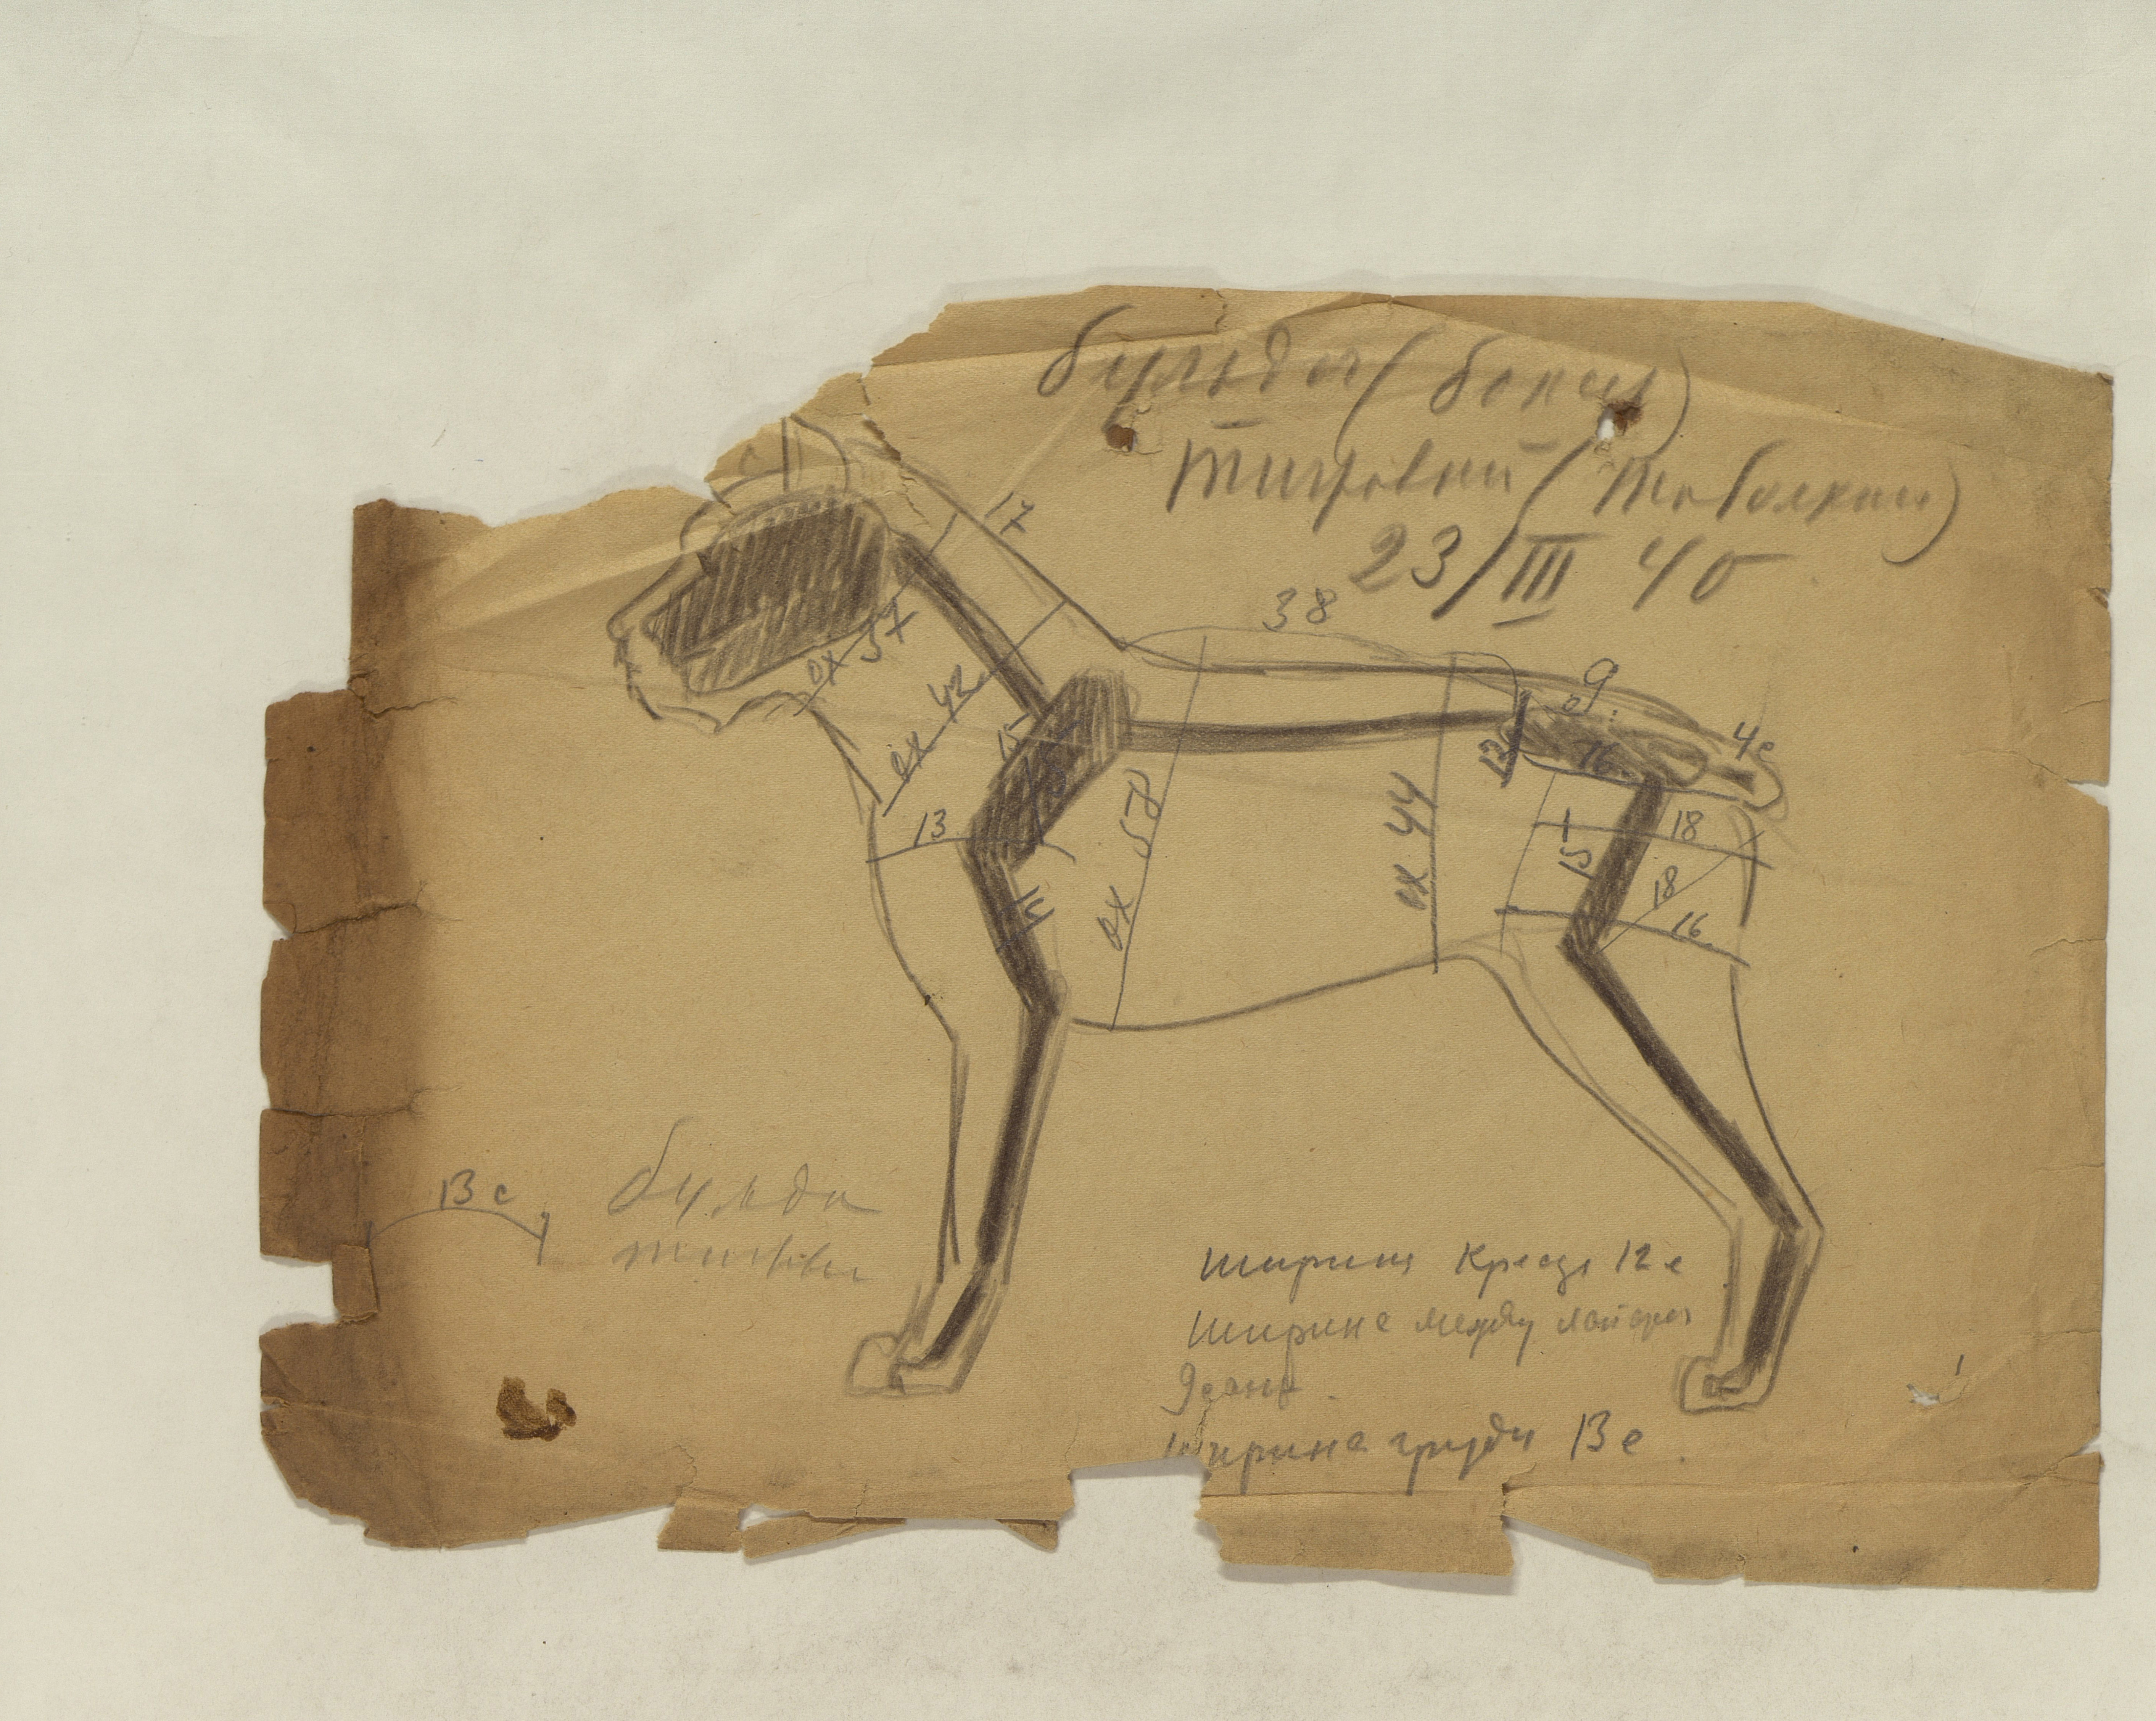 бульдог (боксер)
тигровый (
23/III 40
17
38
ох 57
ох 42
15
9
4с
12
16
13
ох 58
ох 44
15
18
18
16
13 с
бульдог
тигровый
Ширина Крестца 12 с
Ширина между лапами
9 сант.
Ширина груди 13 с